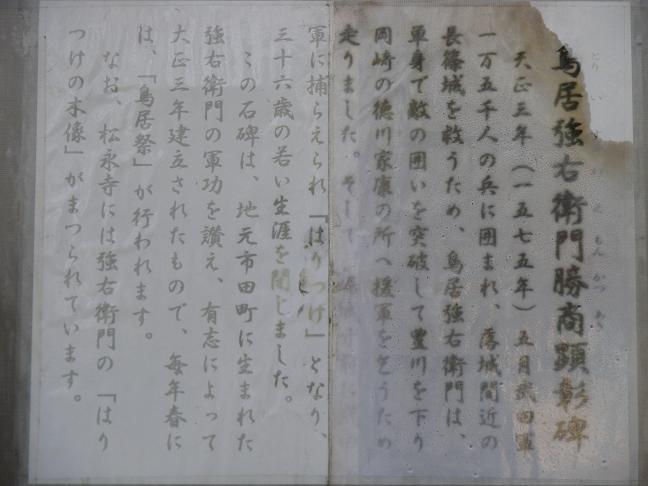 鳥居強右衛門勝商顕彰碑
天正三年(一五七五年)五月武田軍
一万五千人の兵に囲まれ、落城間近の
長篠城を救うため、鳥居強右衛門は、
単身で敵の囲いを突破して豊川を下り
岡崎の徳川家康の所へ援軍を乞うため
走りました。そして
軍に捕らえられ「はりつけ」となり、
三十六歳の若い生涯を閉じました。
この石碑は、地元市田町に生まれた
強右衛門の軍功を讃え、有志によって
大正三年建立されたもので、毎年春に
は、「鳥居祭」が行われます。
なお、松永寺には強右衛門の「はり
つけの木像」がまつられています。